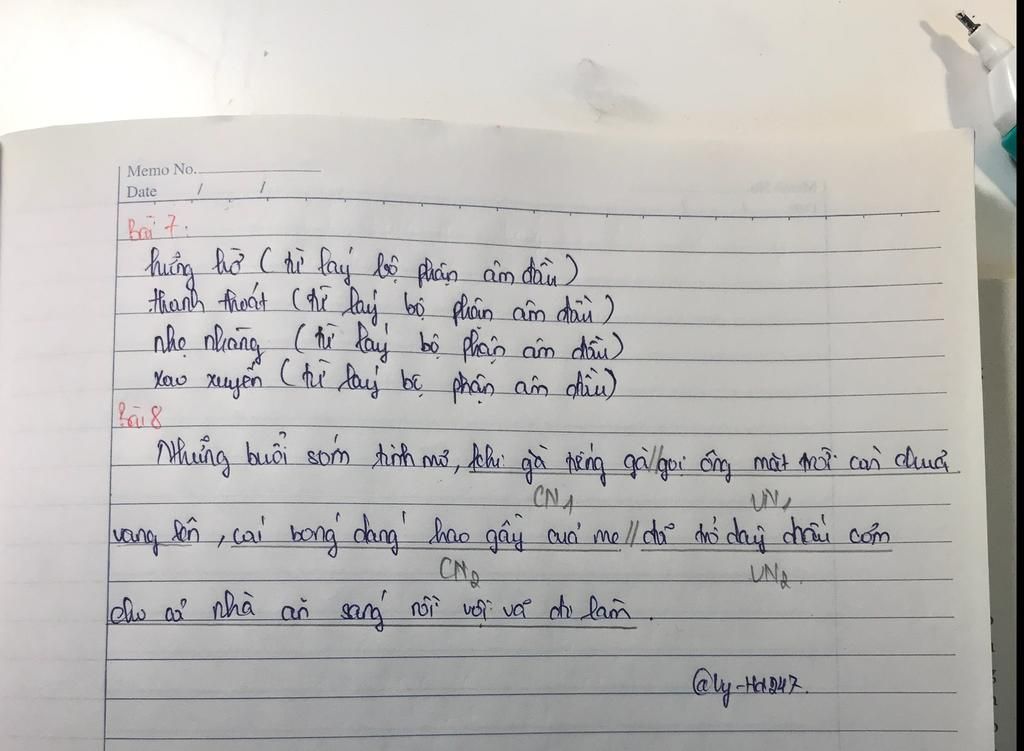 Memo No.
Date / /
Bài 7:
hửng hờ (từ láy bộ phận âm đầu)
thanh thoát (từ láy bộ phận âm đầu)
nhẹ nhàng (từ láy bộ phận âm đầu)
xao xuyến (từ láy bộ phận âm đầu)
Bài 8
Những buổi sớm tinh mơ, khi gà tiếng gà//gọi ông mặt trời còn chưa
CN1 VN1
vang lên, cái bóng dáng hao gầy của mẹ//đã trở dậy nấu cơm
CN2 VN2
cho cả nhà ăn sáng rồi vội vã đi làm.
@ly-Hd247.